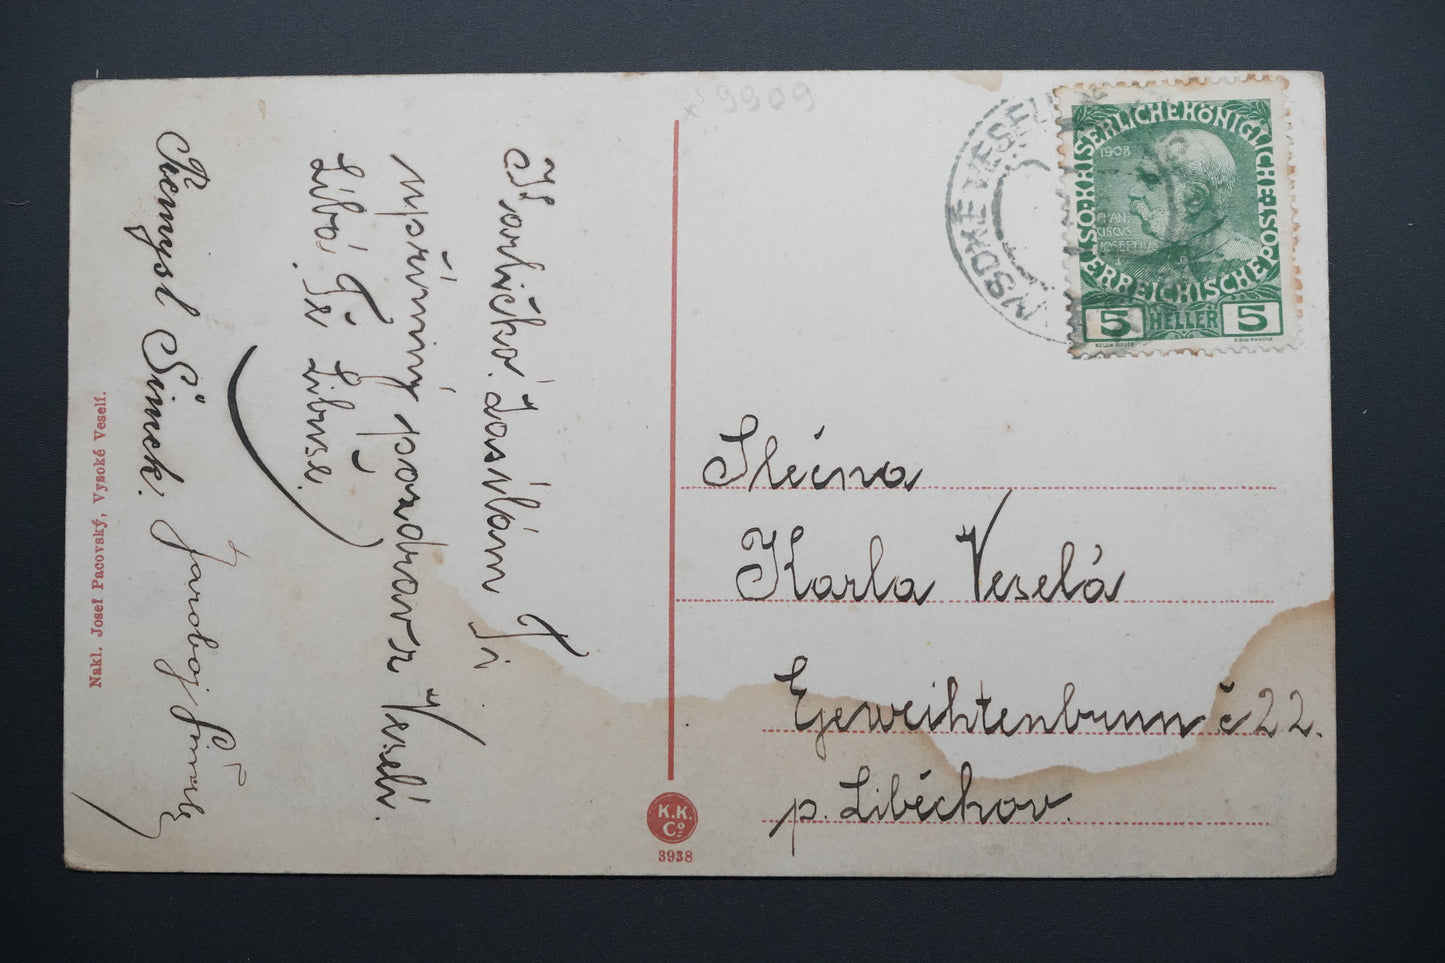 Karličko! Zasílám Ti
upřímný pozdrav z Veselí.
Líbá Tě Libuse.
Přemysl Šimek. Jaroboj Šimek
Nakl. Josef Pacovský, Vysoké Veselí.
9909
VYSOKÉ VESELÍ
KAISERLICHE KÖNIGLICHE ÖSTERREICHISCHE POST
1908
FRAN
CISCUS
JOSEPHUS
5 HELLER 5
Slečna
Karla Veselá
Geweihtenbrunn č 22.
p. Liběchov.
K.K.
Co.
3938